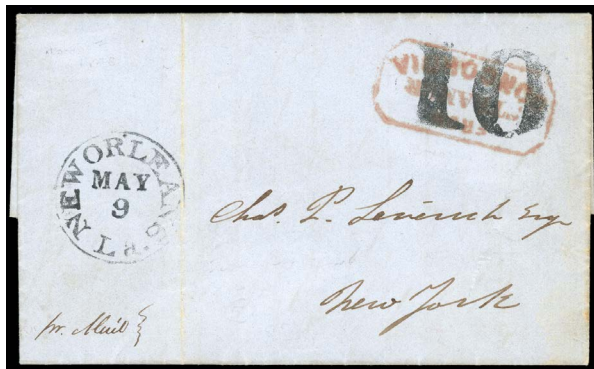 10
NEW ORLEANS LA
MAY
9
Chas. P. Leverich Esq
New York
pr. Mail